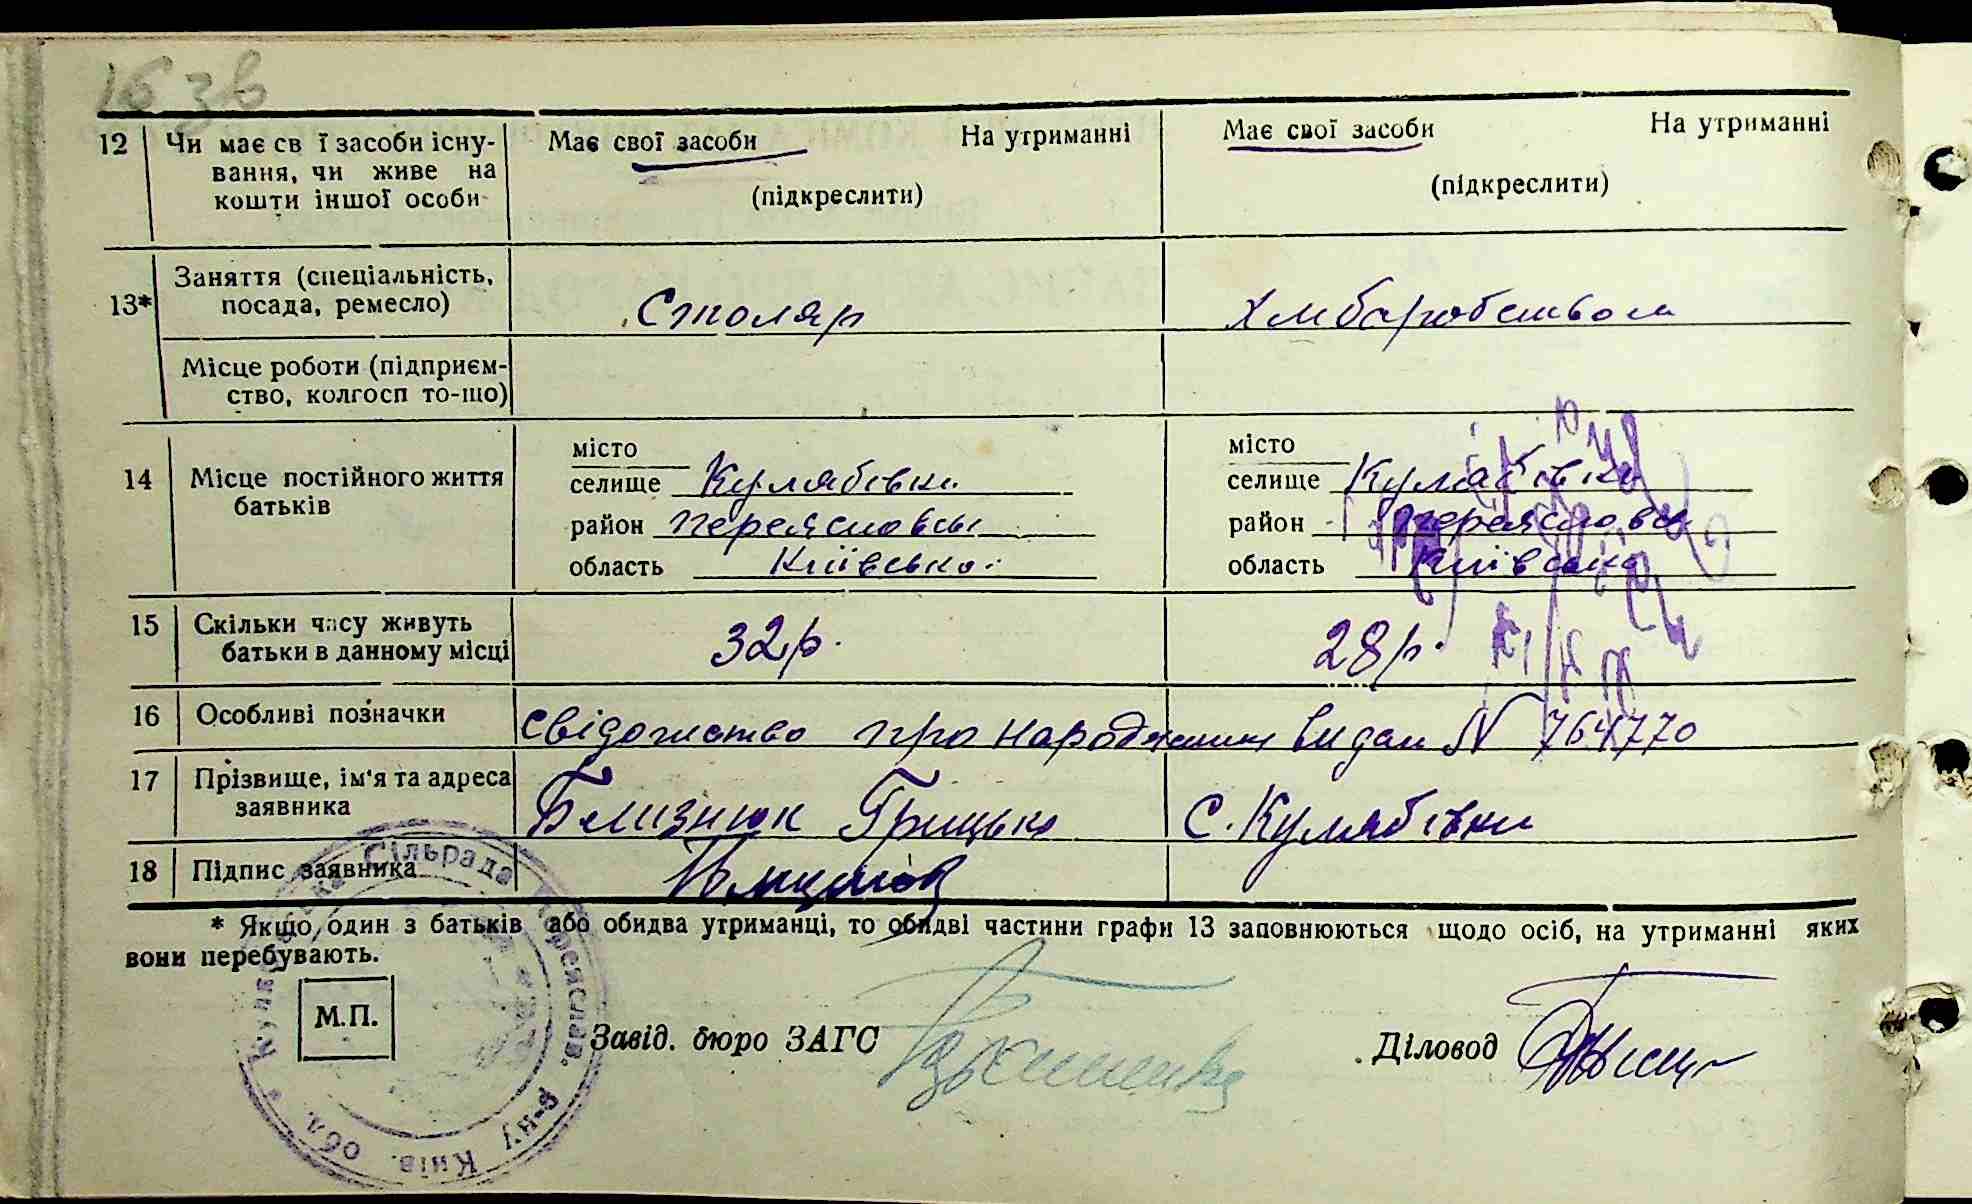 16 зв
12 Чи має св ї засоби існу- Має свої засоби На утриманні Має свої засоби На утриманні
вання, чи живе на
кошти іншої особи (підкреслити) (підкреслити)
13* Заняття (спеціальність,
посада, ремесло) Столяр Хліборобством
Місце роботи (підприєм-
ство, колгосп то-що)
14 Місце постійного життя
батьків
місто
селище Кулябівка
район Переяславськ
область Київська
місто
селище Кулябівка
район Переяславськ
область Київська
15 Скільки часу живуть
батьки в данному місці 32 р. 28 р.
16 Особливі позначки свідоцтво про народження видан N 764770
17 Прізвище, ім'я та адреса
заявника Близнюк Грицько С. Кулябівка
18 Підпис заявника
* Якщо один з батьків або обидва утриманці, то обидві частини графи 13 заповнюються щодо осіб, на утриманні яких
вони перебувають.
М.П. Завід. бюро ЗАГС Діловод
Сільрада Переяслав. р-ну Київ. обл.